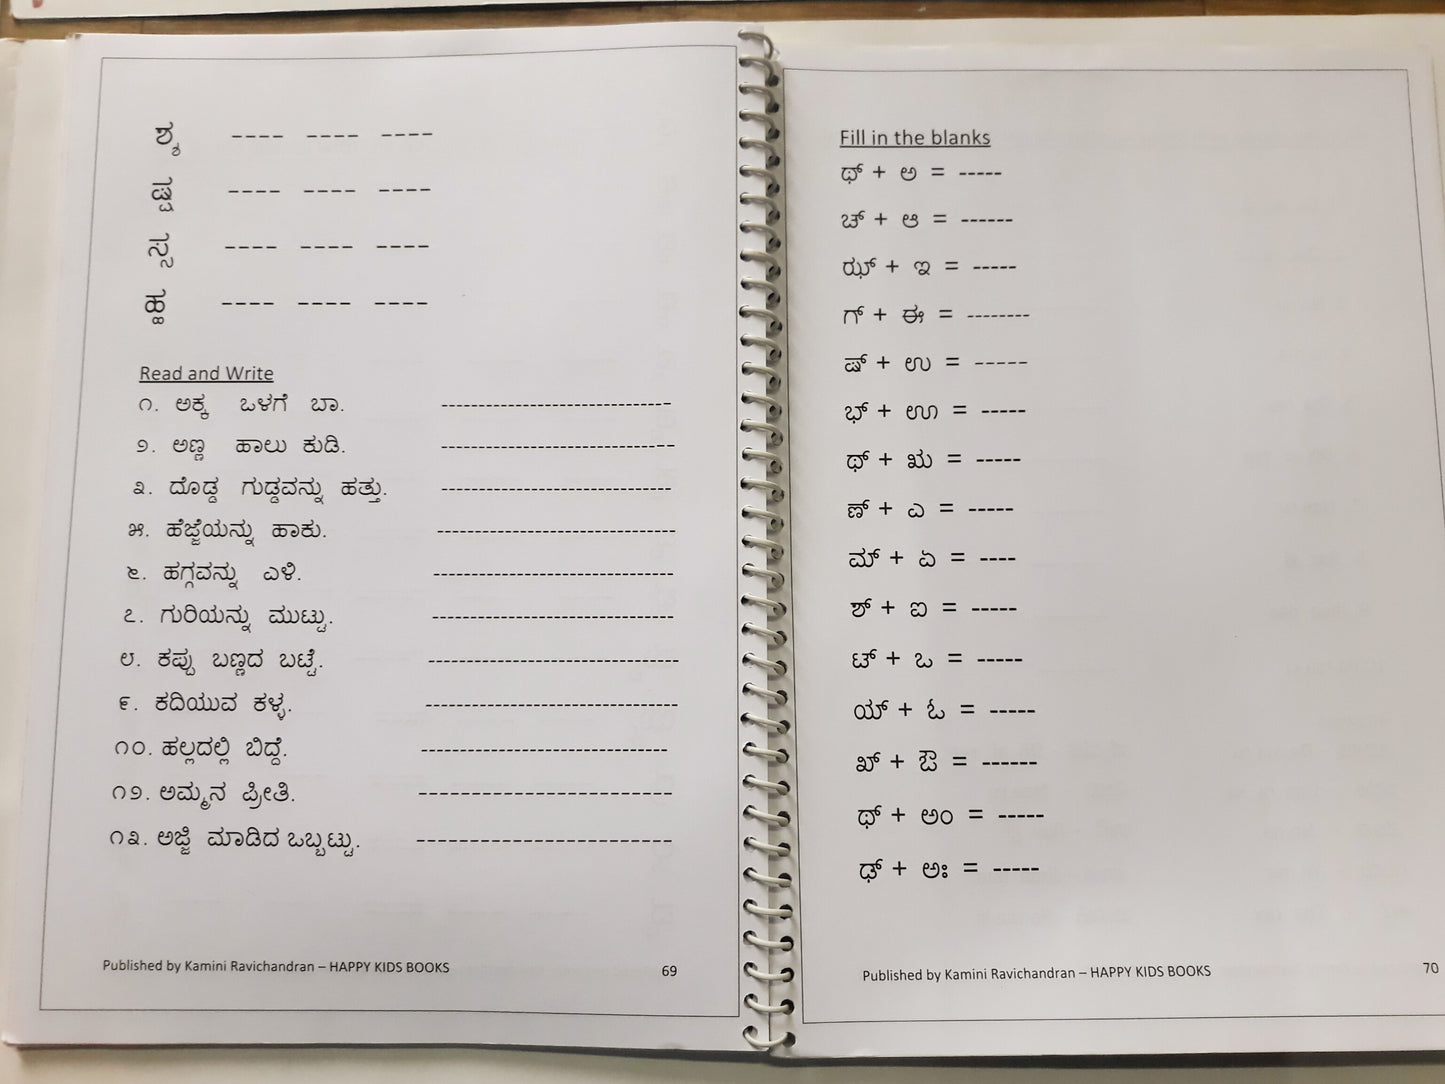 ಶ್ಶ ---- ---- ----
ಷ್ಷ ---- ---- ----
ಸ್ಸ ---- ---- ----
ಹ್ಹ ---- ---- ----
Read and Write
೧. ಅಕ್ಕ ಒಳಗೆ ಬಾ. ----------------------------
೨. ಅಣ್ಣ ಹಾಲು ಕುಡಿ. ----------------------------
೩. ದೊಡ್ಡ ಗುಡ್ಡವನ್ನು ಹತ್ತು. ----------------------------
೫. ಹೆಜ್ಜೆಯನ್ನು ಹಾಕು. ----------------------------
೬. ಹಗ್ಗವನ್ನು ಎಳಿ. ----------------------------
೭. ಗುರಿಯನ್ನು ಮುಟ್ಟು. ----------------------------
೮. ಕಪ್ಪು ಬಣ್ಣದ ಬಟ್ಟೆ. ----------------------------
೯. ಕದಿಯುವ ಕಳ್ಳ. ----------------------------
೧೦. ಹಲ್ಲದಲ್ಲಿ ಬಿದ್ದೆ. ----------------------------
೧೨. ಅಮ್ಮನ ಪ್ರೀತಿ. ----------------------------
೧೩. ಅಜ್ಜಿ ಮಾಡಿದ ಒಬ್ಬಟ್ಟು. ----------------------------
Published by Kamini Ravichandran – HAPPY KIDS BOOKS 69
Fill in the blanks
ಧ್ + ಅ = -----
ಚ್ + ಆ = ------
ಝ್ + ಇ = -----
ಗ್ + ಈ = --------
ಷ್ + ಉ = ------
ಭ್ + ಊ = -----
ಥ್ + ಋ = -----
ಣ್ + ಎ = -----
ಮ್ + ಏ = ----
ಶ್ + ಐ = -----
ಟ್ + ಒ = -----
ಯ್ + ಓ = -----
ಖ್ + ಔ = ------
ಥ್ + ಅಂ = -----
ಢ್ + ಅಃ = -----
Published by Kamini Ravichandran – HAPPY KIDS BOOKS 70